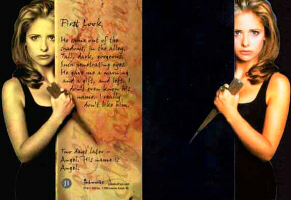 First Look,
He came out of the
shadows, in the alley.
Tall, dark, gorgeous.
Such penetrating eyes.
He gave me a warning
and a gift, and left. I
don't even know his
name. I really
don't like him.
Two days later –
Angel. His name is
Angel.